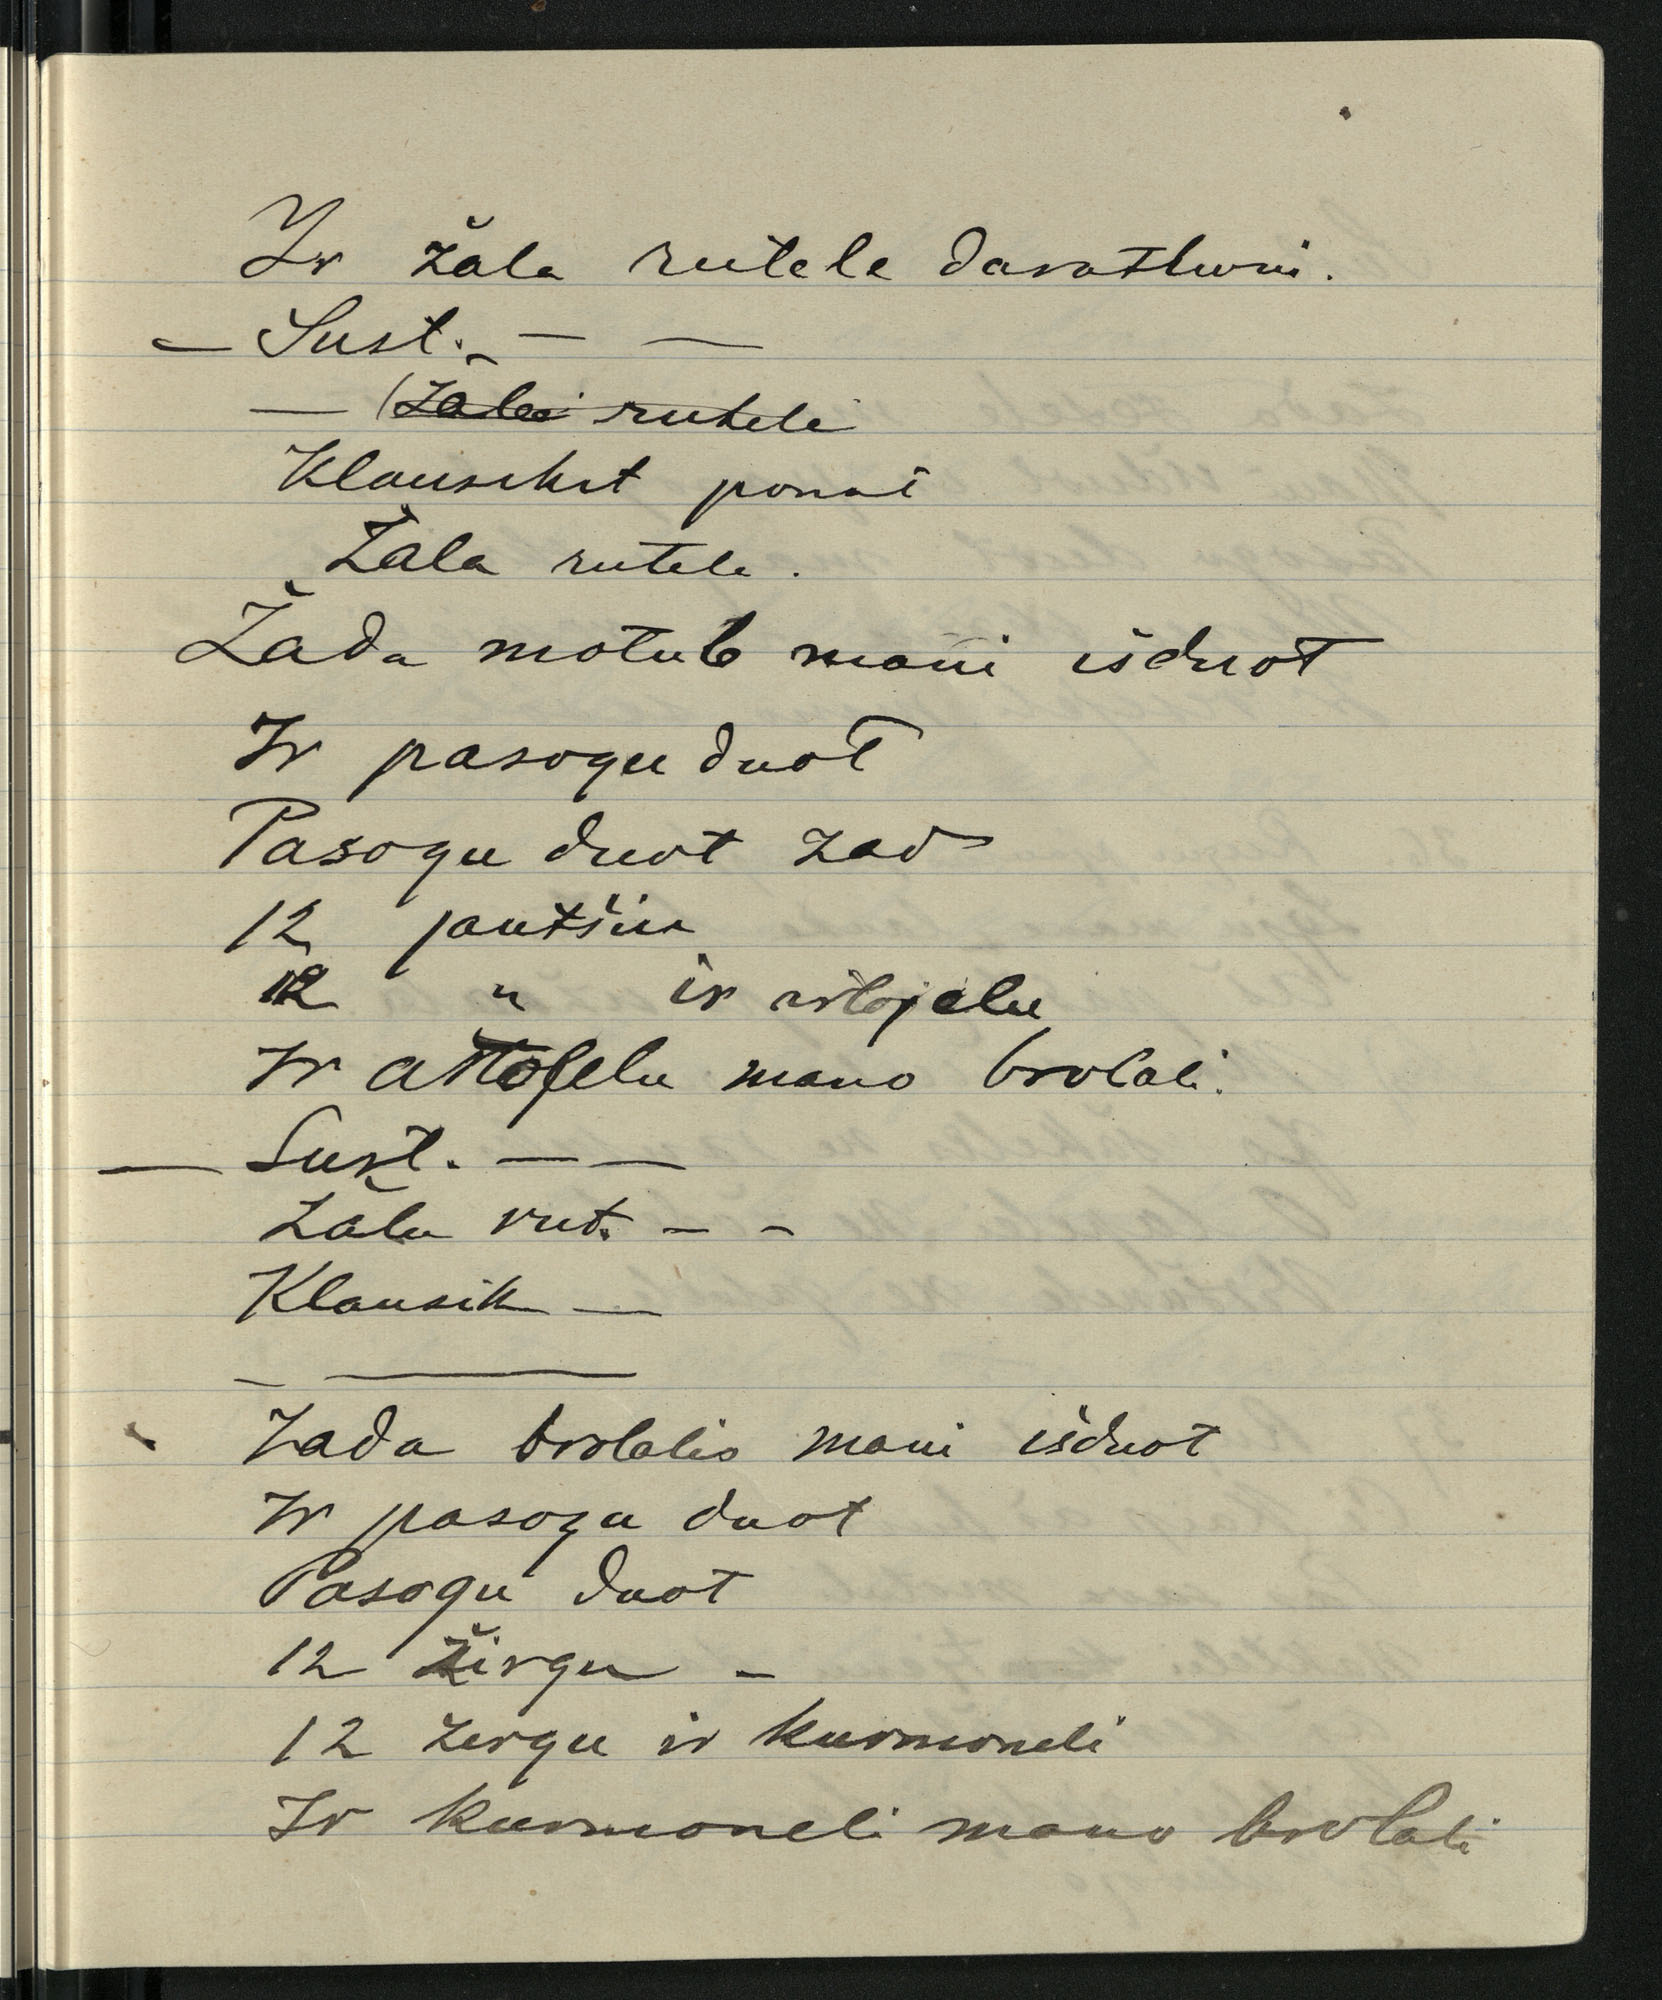 Ir žala rutele
— Sust. — —
— (Žalei ruteli
Klausikit ponai
Žala rutele.
Žada motule mani išduot
Ir pasogu duot
Pasogu duot žad
12 jautšiu
12 " ir
Ir mano brolali.
— Sust. — —
Žala rut. – –
Klausik —
– —
Žada brolalis mani išduot
Ir pasogu duot
Pasogu duot
12 žirgu –
12 žirgu ir kurmoneli
Ir kurmoneli mano brolali